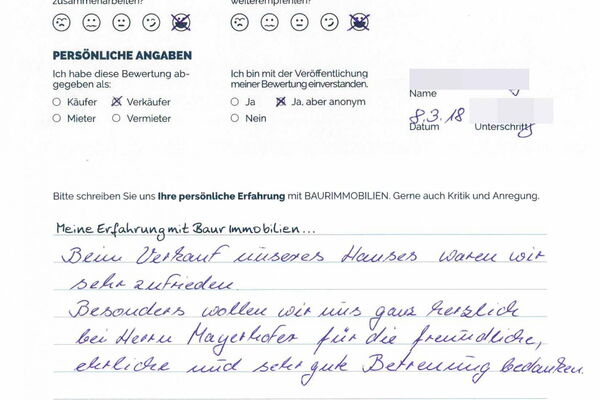 zusammenarbeiten?
weiterempfehlen?
PERSÖNLICHE ANGABEN
Ich habe diese Bewertung ab-
gegeben als:
Käufer Verkäufer
Mieter Vermieter
Ich bin mit der Veröffentlichung
meiner Bewertung einverstanden.
Ja Ja, aber anonym
Nein
Name
8.3.18
Datum Unterschrift
Bitte schreiben Sie uns Ihre persönliche Erfahrung mit BAURIMMOBILIEN. Gerne auch Kritik und Anregung.
Meine Erfahrung mit Baur Immobilien...
Beim Verkauf unseres Hauses waren wir
sehr zufrieden.
Besonders wollen wir uns ganz herzlich
bei Herrn Mayerhofer für die freundliche,
ehrliche und sehr gute Betreuung bedanken.